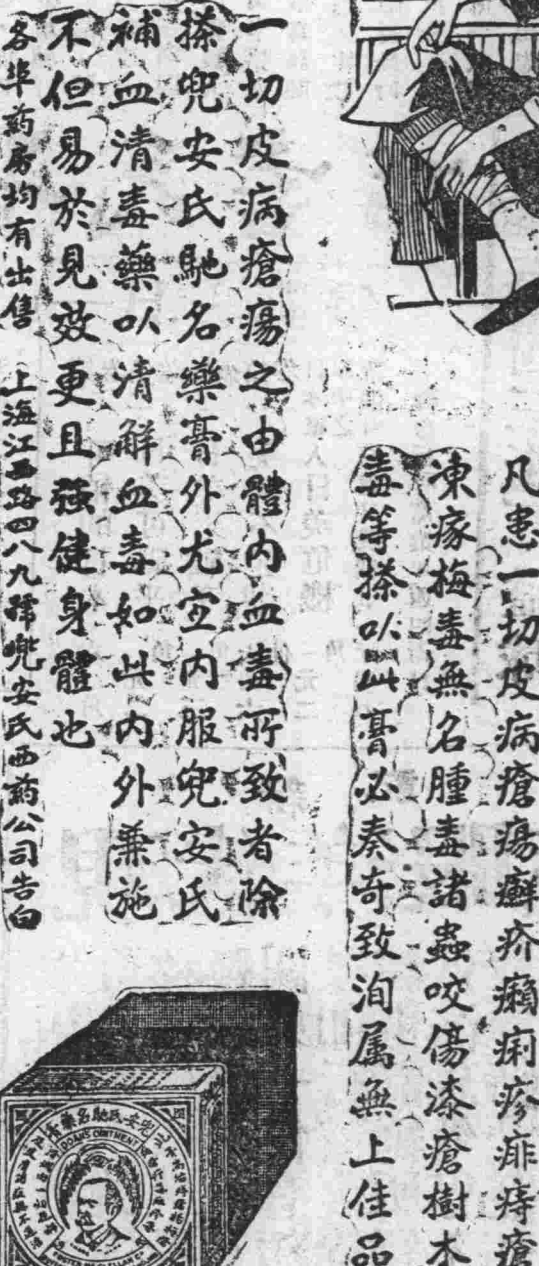 凡患一切皮病瘡瘍癬疥癩痢疹痱痔瘡
凍瘃梅毒無名腫毒諸蟲咬傷漆瘡樹木
毒等搽以此膏必奏奇致洵属無上佳品
一切皮病瘡瘍之由體内血毒所致者除
搽兜安氏馳名藥膏外尤宜内服兜安氏
補血清毒藥以清解血毒如此内外兼施
不但易於見效更且強健身體也
各埠药房均有出售 上海江西路四八九號兜安氏西药公司告白
兜安氏馳名藥膏
DOAN'S OINTMENT
FOSTER McCLELLAN CO